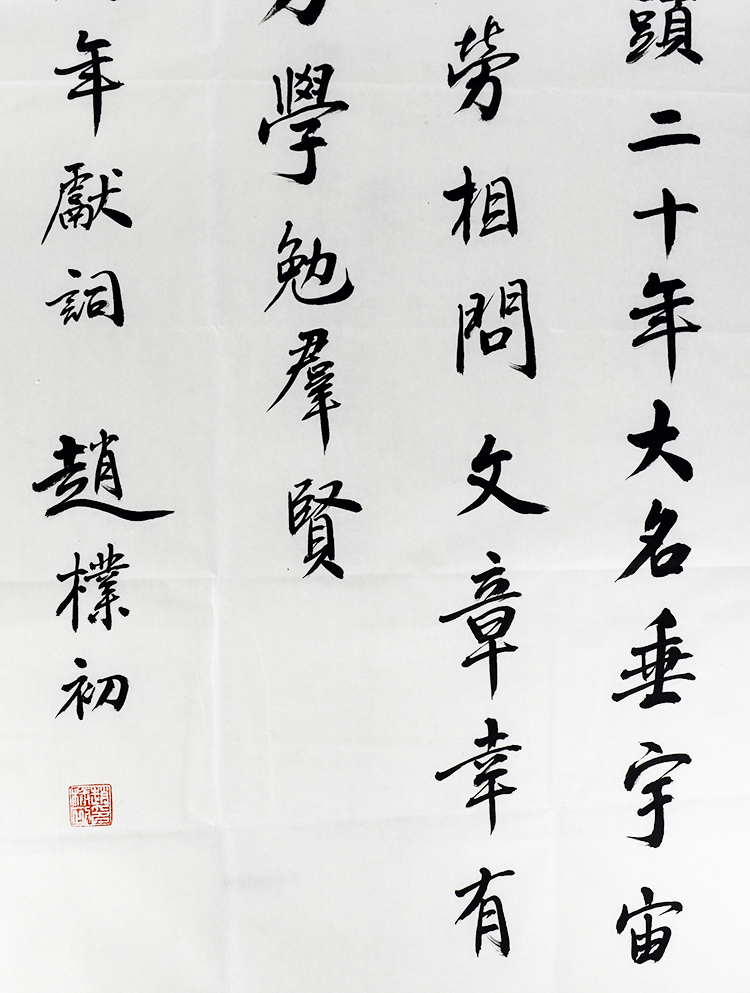 二十年大名垂宇宙
勞相問文章幸有
學勉羣賢
年獻詞
趙樸初